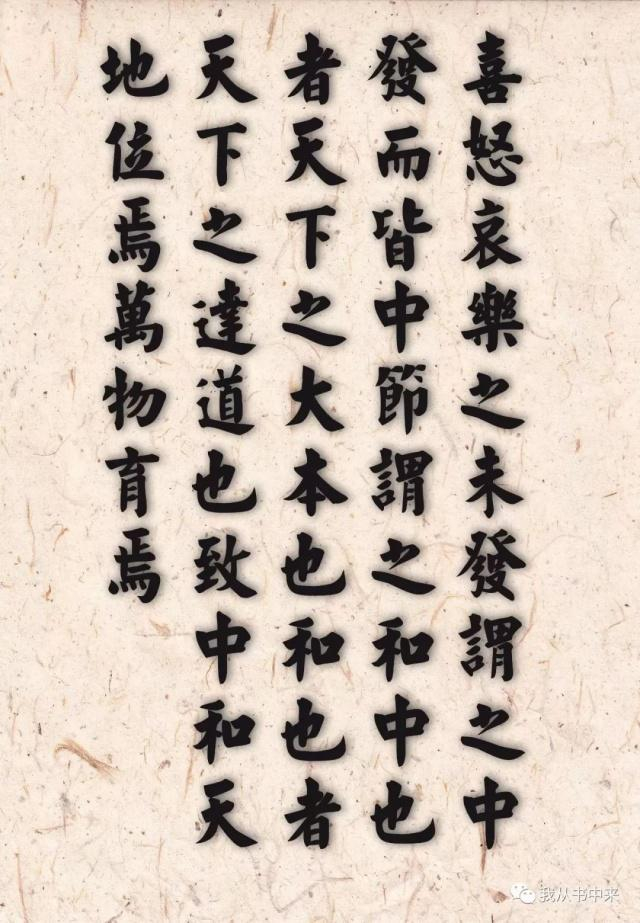 喜怒哀樂之未發謂之中
發而皆中節謂之和中也
者天下之大本也和也者
天下之達道也致中和天
地位焉萬物育焉
我从书中来